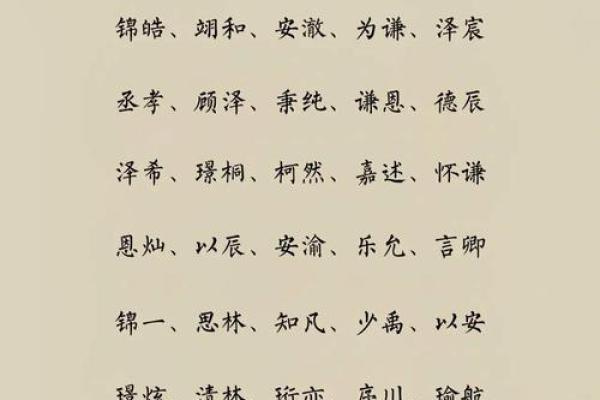 锦皓、翊和、安澈、为谦、泽宸
丞孝、顾泽、秉纯、谦恩、德辰
泽希、璟桐、柯然、嘉述、怀谦
恩灿、以辰、安渝、乐允、言卿
锦一、思林、知凡、少禹、以安
璟炫、清林、珩亦、序川、瑜航